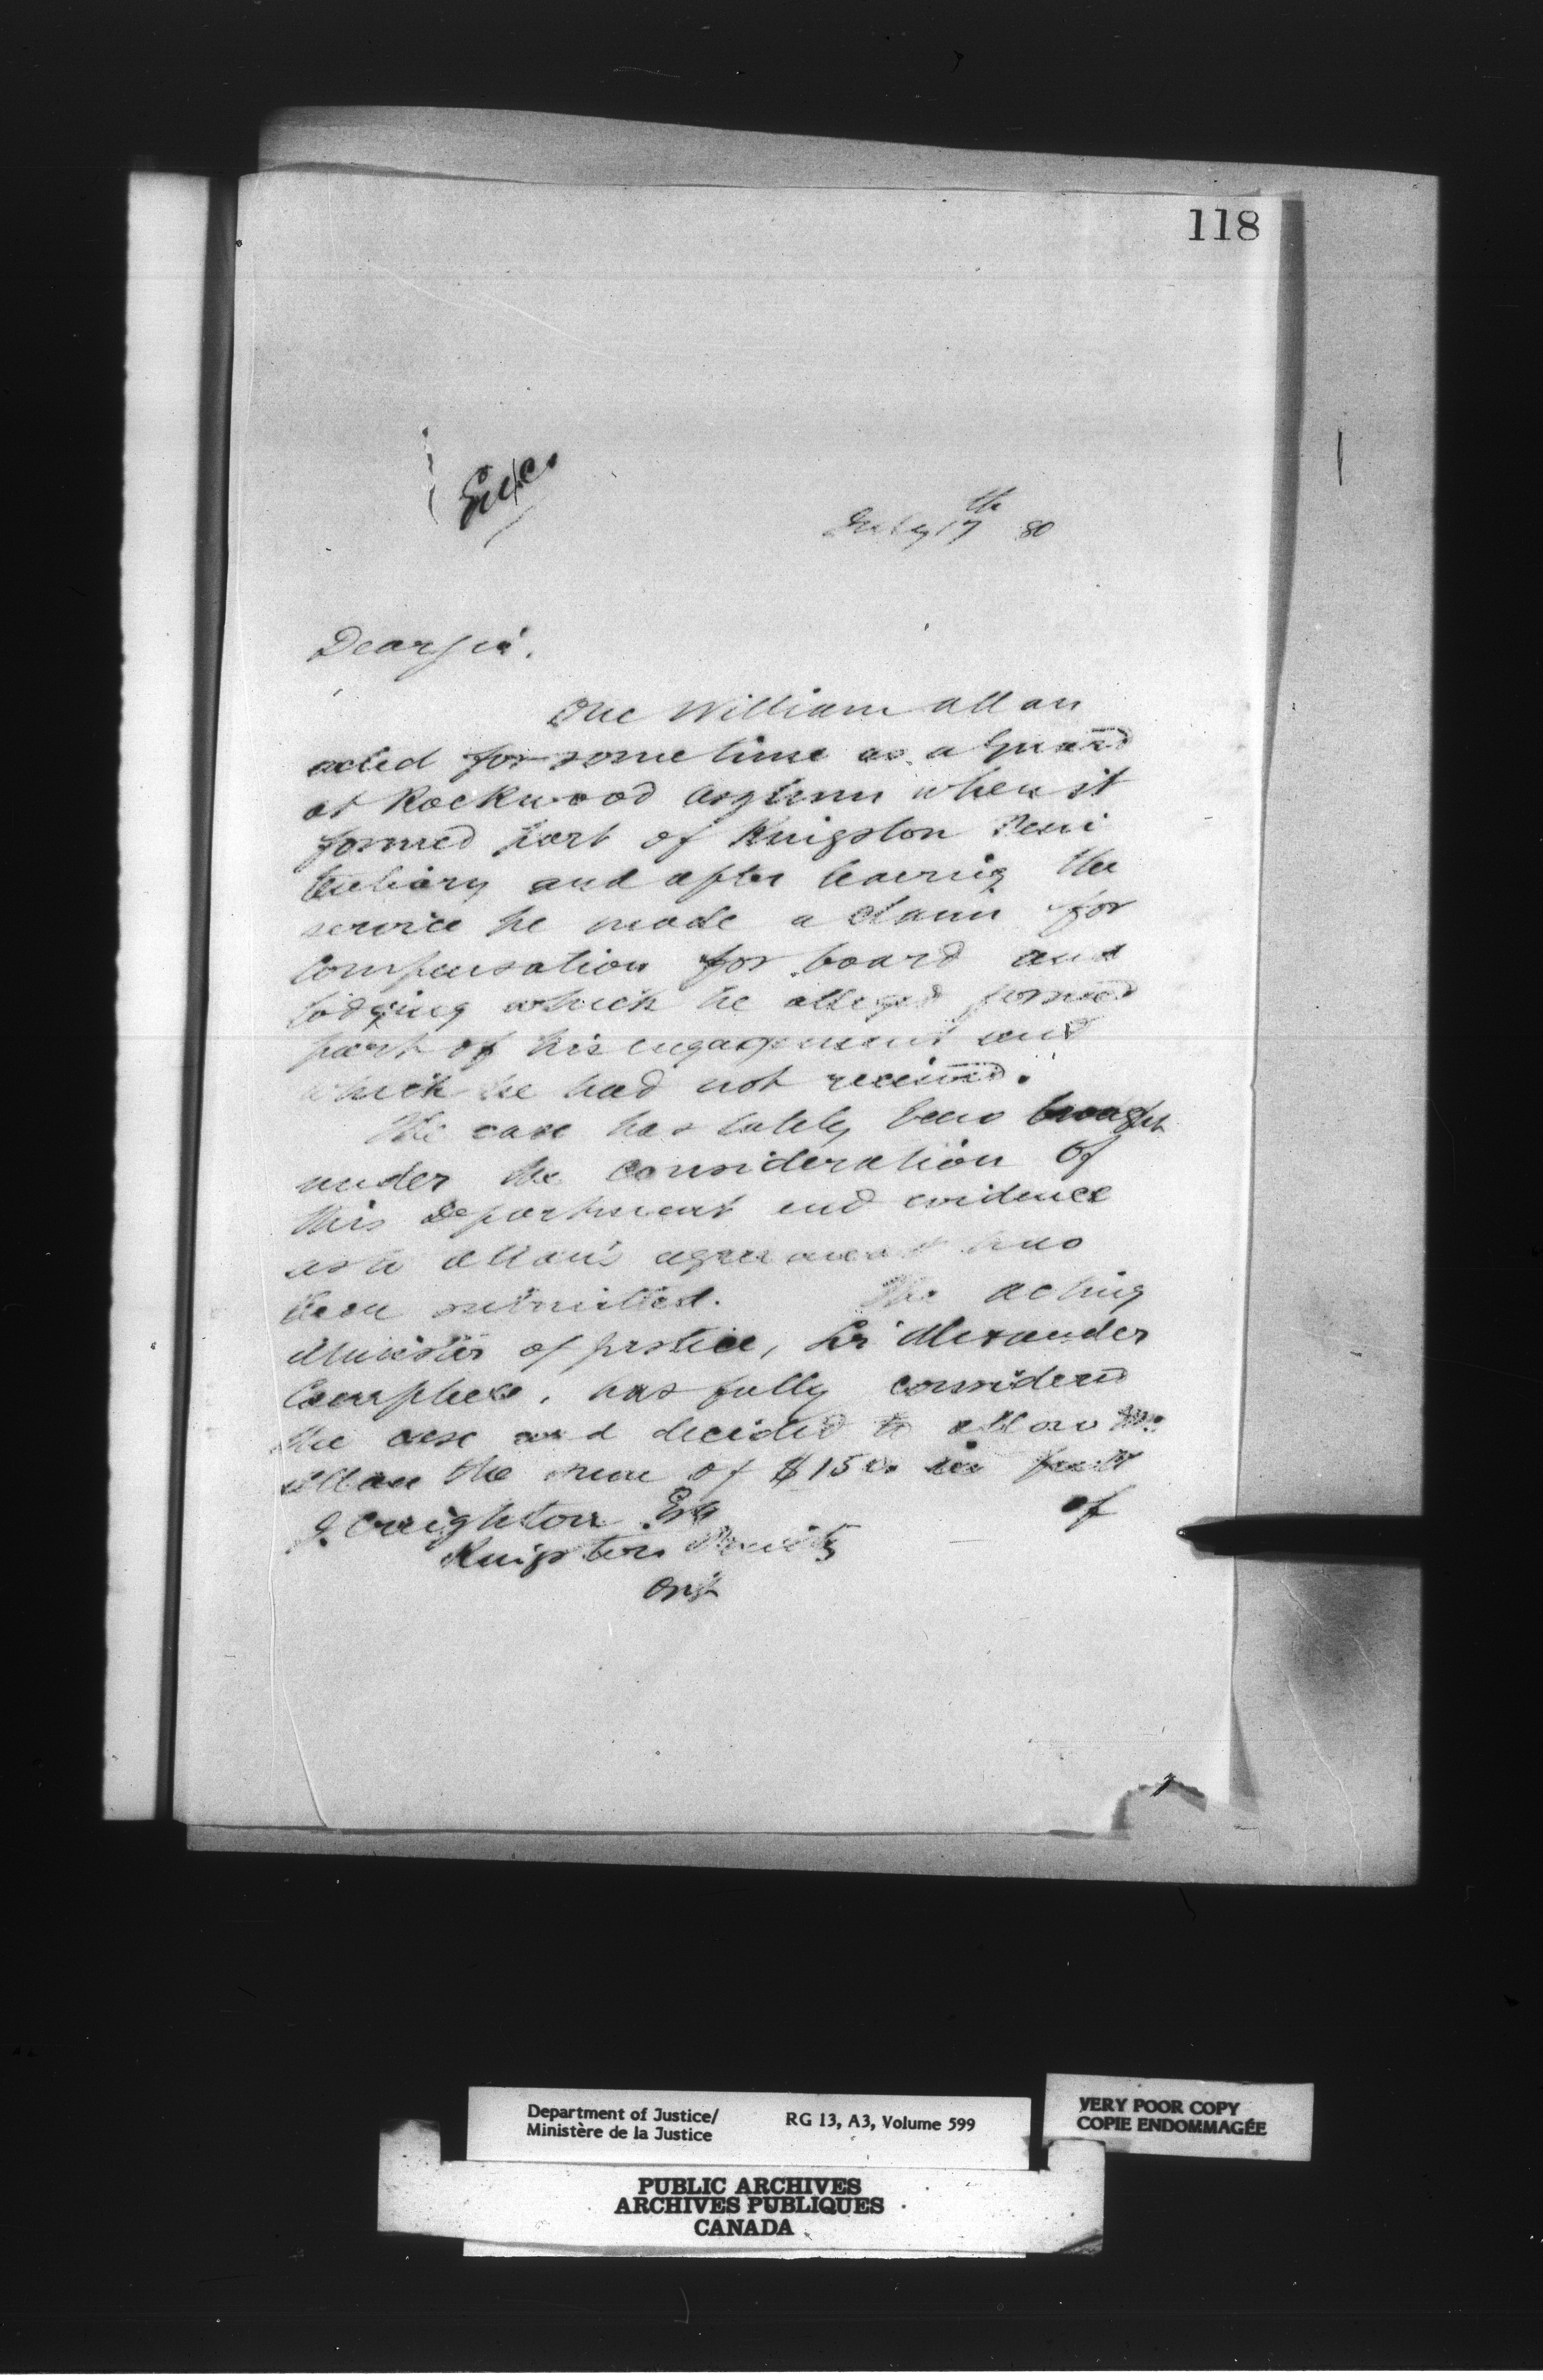 118
July 17th 80
Dear Sir.
One William Allan
acted for some time as a Guard
at Rockwood Asylum when it
formed part of Kingston Peni
tentiary and after leaving the
service he made a claim for
Compensation for board and
lodging which he alleged formed
part of his engagement and
which he had not received.
The case has lately been brought
under the consideration of
this Department and evidence
as to Allan's agreement has
been submitted. The acting
Minister of Justice, Sir Alexander
Campbell, has fully considered
the case and decided to allow Mr.
Allan the sum of $150. in full
of
J. Creighton Esq
Kingston Penity
Ont
Department of Justice/
Ministère de la Justice
RG 13, A3, Volume 599
VERY POOR COPY
COPIE ENDOMMAGÉE
PUBLIC ARCHIVES
ARCHIVES PUBLIQUES
CANADA